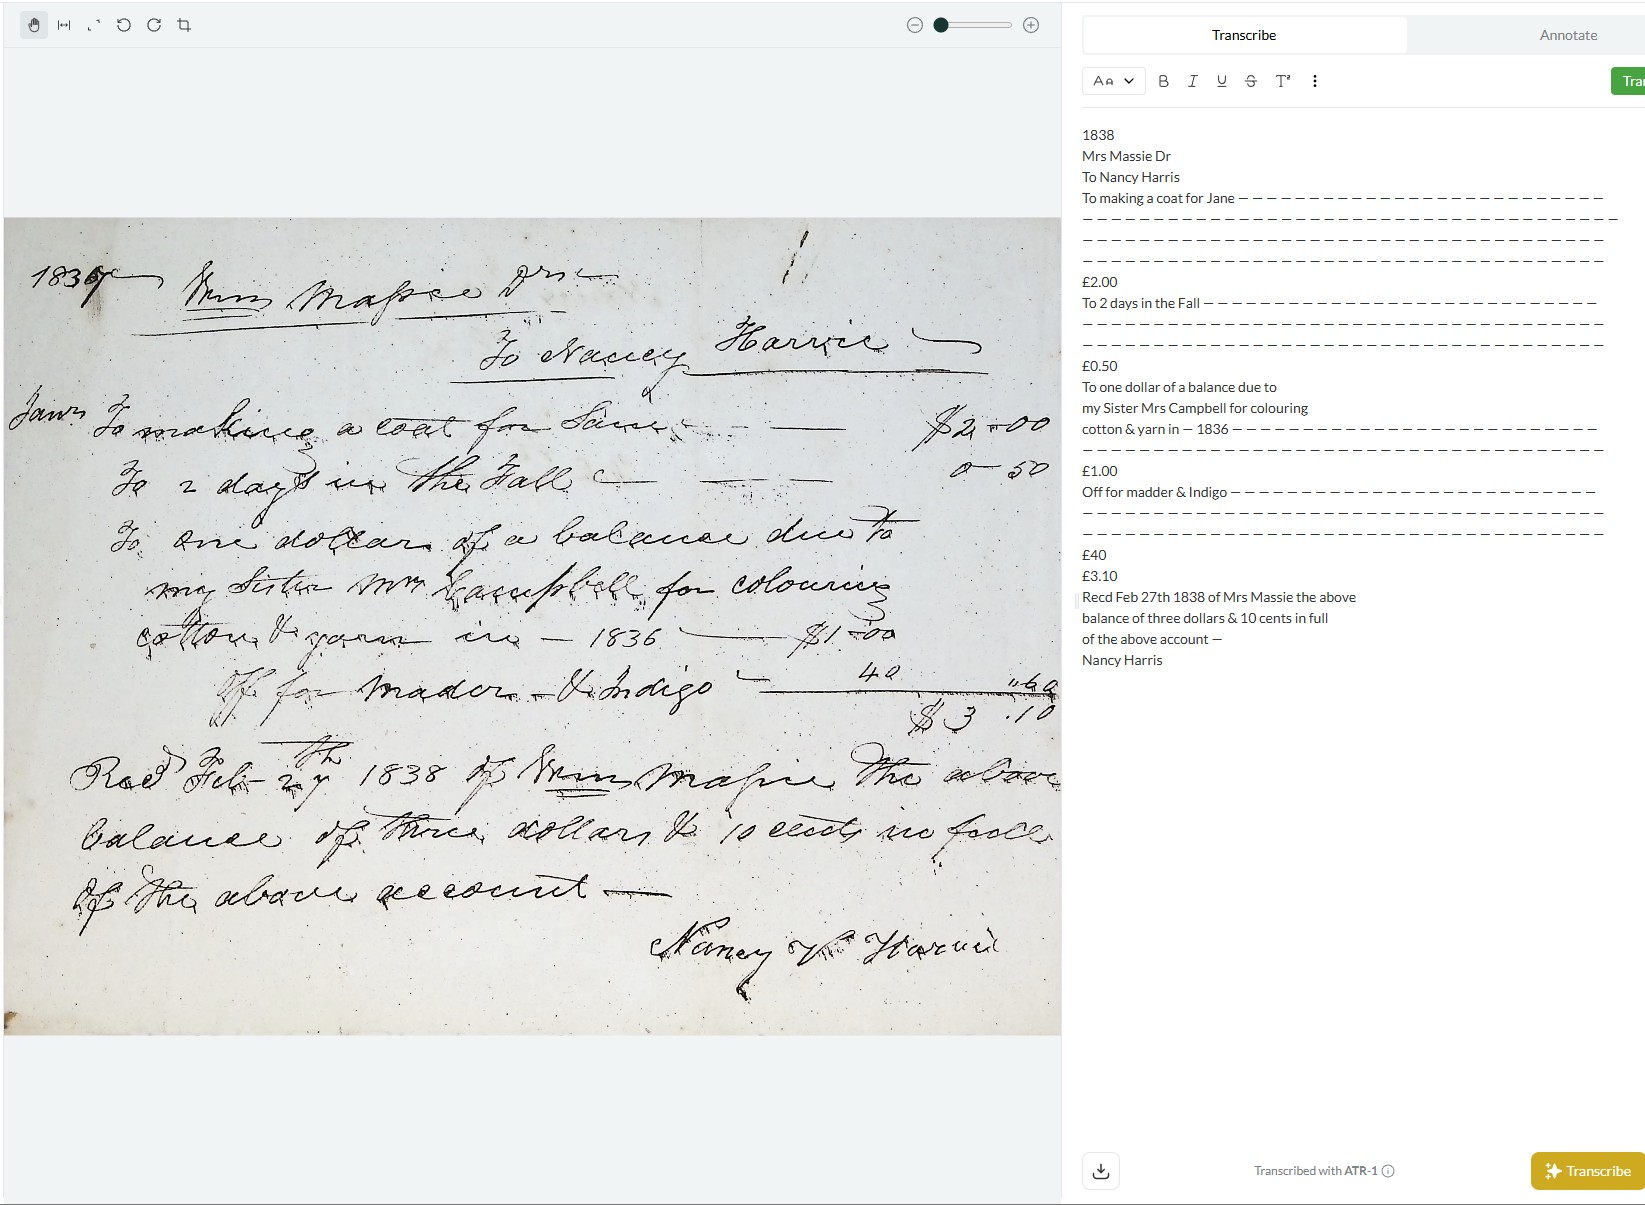 Transcribe
Annotate
Aa
B I U S T
Tra
1837
Wm Massie Dr
To Nancy Harris
Jany To making a coat for Sam — — $2-00
To 2 days in the Fall — — 0-50
To one dollar of a balance due to
my Sister Mrs Campbell for colouring
cotton & yarn in — 1836 — $1-00
Off for Mader & Indigo — 40 "60
$3.10
Recd Feb 27th 1838 of Wm Massie the above
balance of three dollars & 10 cents in full
of the above account —
Nancy Harris
1838
Mrs Massie Dr
To Nancy Harris
To making a coat for Jane — — — — — — — — — — — — — — — — — — — — — — — — — —
— — — — — — — — — — — — — — — — — — — — — — — — — — — — — — — — — — — — — —
— — — — — — — — — — — — — — — — — — — — — — — — — — — — — — — — — — — — —
— — — — — — — — — — — — — — — — — — — — — — — — — — — — — — — — — — — — —
£2.00
To 2 days in the Fall — — — — — — — — — — — — — — — — — — — — — — — — — — — —
— — — — — — — — — — — — — — — — — — — — — — — — — — — — — — — — — — — — —
— — — — — — — — — — — — — — — — — — — — — — — — — — — — — — — — — — — — —
£0.50
To one dollar of a balance due to
my Sister Mrs Campbell for colouring
cotton & yarn in — 1836 — — — — — — — — — — — — — — — — — — — — — — — — — —
— — — — — — — — — — — — — — — — — — — — — — — — — — — — — — — — — — — — —
£1.00
Off for madder & Indigo — — — — — — — — — — — — — — — — — — — — — — — — — —
— — — — — — — — — — — — — — — — — — — — — — — — — — — — — — — — — — — — —
— — — — — — — — — — — — — — — — — — — — — — — — — — — — — — — — — — — — —
£40
£3.10
Recd Feb 27th 1838 of Mrs Massie the above
balance of three dollars & 10 cents in full
of the above account —
Nancy Harris
Transcribed with ATR-1
Transcribe